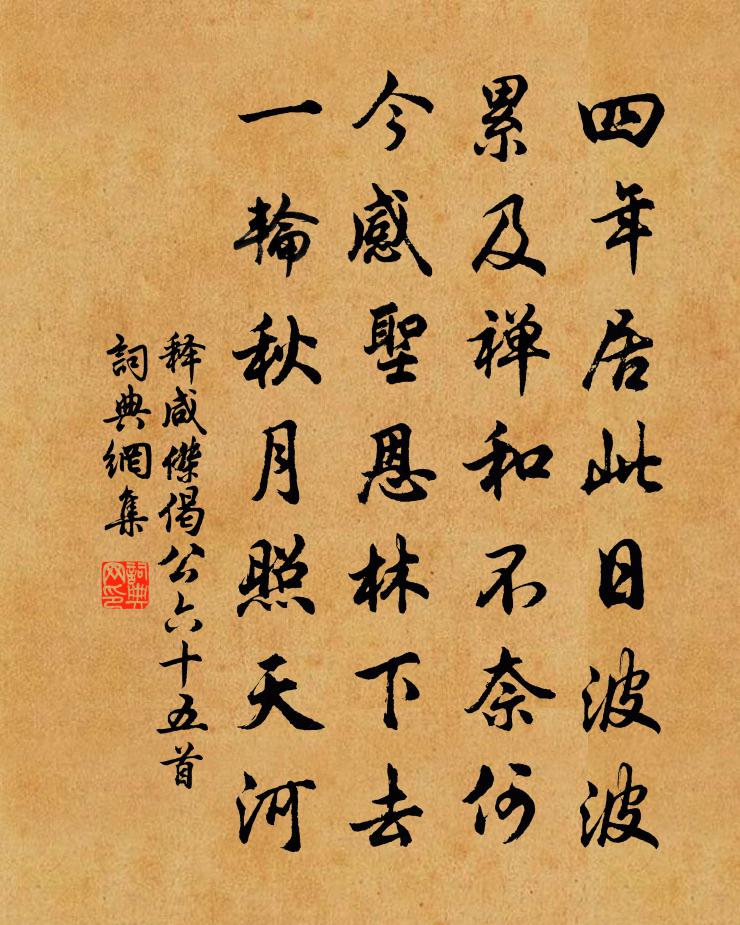 四年居此日波波
累及禅和不奈何
今感聖恩林下去
一輪秋月照天河
释咸傑偈公六十五首
詞典網集
詞典网印